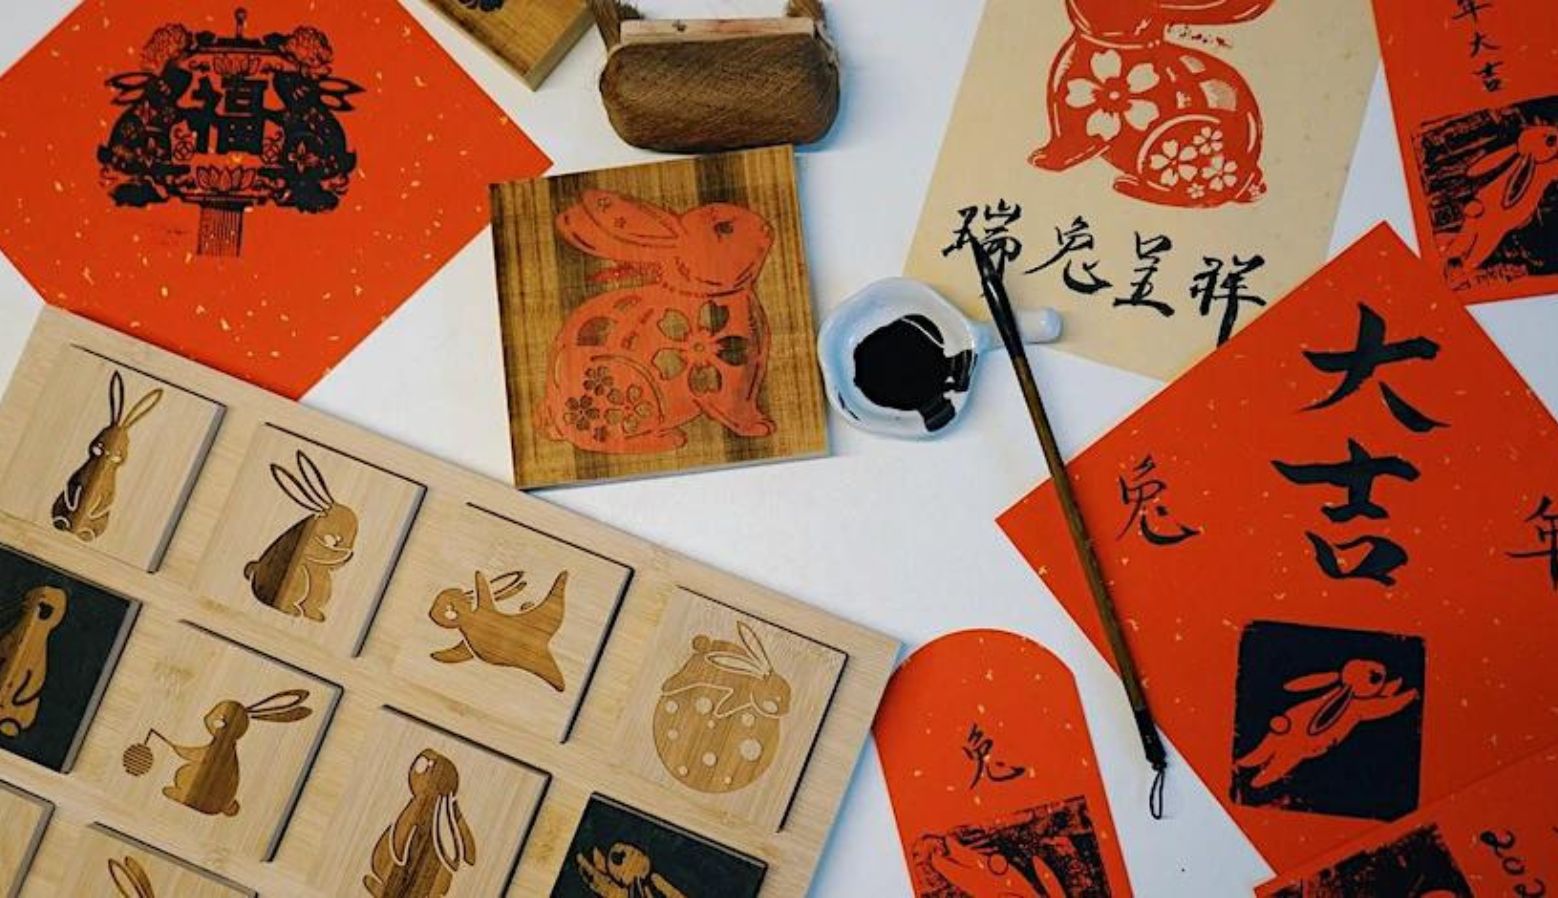 福
瑞兔呈祥
年大吉
大吉
兔
年
兔
202